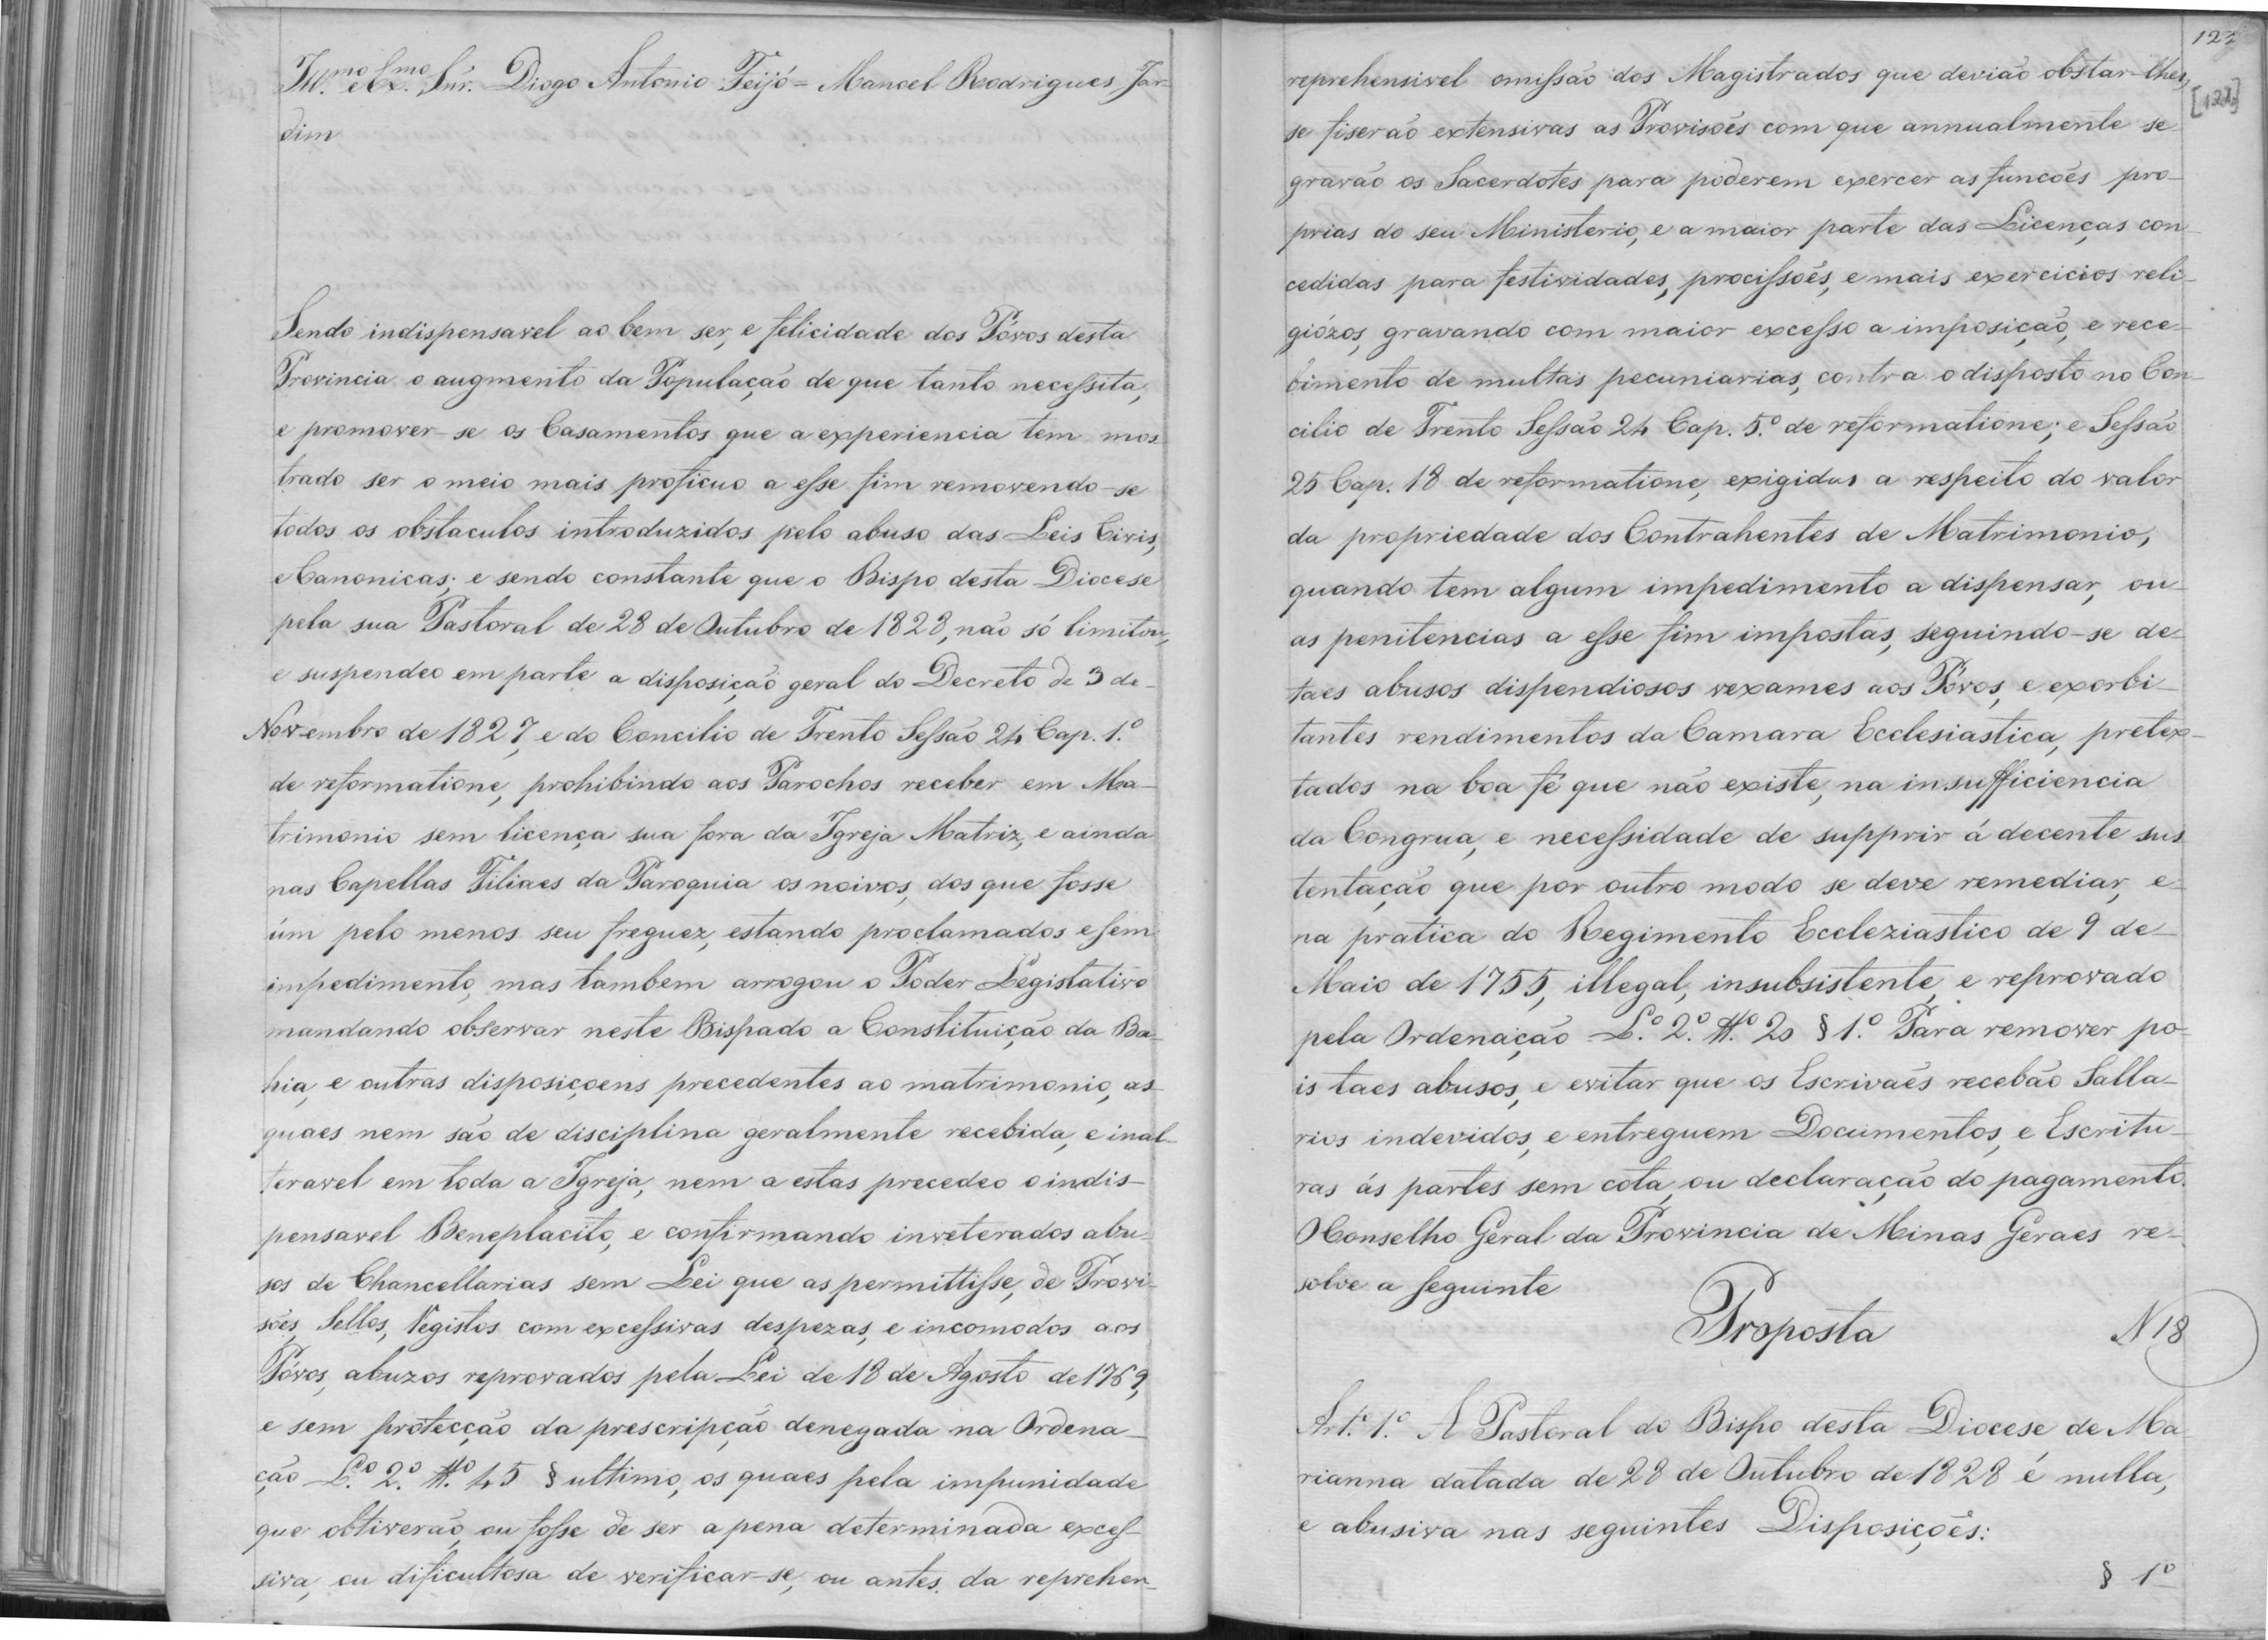 Ill.mo e Ex.mo Snr. Diogo Antonio Feijó = Manoel Rodrigues Jar-
dim
Sendo indispensavel ao bem ser, e felicidade dos Póvos desta
Provincia o augmento da População de que tanto necessita,
e promover-se os Casamentos que a experiencia tem mos-
trado ser o meio mais proficuo a esse fim removendo-se
todos os obstaculos introduzidos pelo abuso das Leis Civis,
e Canonicas; e sendo constante que o Bispo desta Diocese
pela sua Pastoral de 28 de Outubro de 1828, não só limitou,
e suspendeo em parte a disposição geral do Decreto de 3 de
Novembro de 1827, e do Concilio de Trento Sessão 24 Cap. 1.º
de reformatione, prohibindo aos Parochos receber em Ma-
trimonio sem licença sua fora da Igreja Matriz, e ainda
nas Capellas Filiaes da Paroquia os noivos, dos que fosse
úm pelo menos seu freguez, estando proclamados e sem
impedimento, mas tambem arrogou o Poder Legislativo
mandando observar neste Bispado a Constituição da Ba-
hia, e outras disposiçoens precedentes ao matrimonio, as
quaes nem são de disciplina geralmente recebida, e inal-
teravel em toda a Igreja, nem a estas precedeo o indis-
pensavel Beneplacito, e confirmando inveterados abu-
sos de Chancellarias sem Lei que as permittisse, de Provi-
sões, Sellos, Registos com excessivas despezas, e incomodos aos
Póvos, abuzos reprovados pela Lei de 18 de Agosto de 1769,
e sem protecção da prescripção denegada na Ordena-
ção L.º 2.º tt.º 45 § ultimo, os quaes pela impunidade
que obtiverão, ou fosse de ser a pena determinada exces-
siva, ou dificultosa de verificar-se, ou antes da reprehen-
122
[122]
reprehensivel omissão dos Magistrados que devião obstar-lhes,
se fiserão extensivas as Provisões com que annualmente se
gravão os Sacerdotes para poderem exercer as funcões pro-
prias do seu Ministerio, e a maior parte das Licenças con-
cedidas para festividades, procissões, e mais exercicios reli-
giózos, gravando com maior excesso a imposição, e rece-
bimento de multas pecuniarias, contra o disposto no Con-
cilio de Trento Sessão 24 Cap. 5.º de reformatione; e Sessão
25 Cap. 18 de reformatione, exigidas a respeito do valor
da propriedade dos Contrahentes de Matrimonio,
quando tem algum impedimento a dispensar, ou
as penitencias a esse fim impostas, seguindo-se de
taes abusos dispendiosos vexames aos Póvos, e exorbi-
tantes rendimentos da Camara Ecclesiastica, pretex-
tados na boa fé que não existe, na insufficiencia
da Congrua, e necessidade de supprir á decente sus
tentação que por outro modo se deve remediar, e
na pratica do Regimento Eccleziastico de 9 de
Maio de 1755, illegal, insubsistente, e reprovado
pela Ordenação L.º 2.º tt.º 20 § 1.º Para remover po-
is taes abusos, e evitar que os Escrivaẽs recebão Salla-
rios indevidos, e entreguem Documentos, e Escritu-
ras ás partes sem cota, ou declaração do pagamento.
O Conselho Geral da Provincia de Minas Geraes re-
solve a seguinte
Proposta N 18
Art.º 1.º A Pastoral do Bispo desta Diocese de Ma
rianna datada de 28 de Outubro de 1828 é nulla,
e abusiva nas seguintes Disposições:
§ 1º